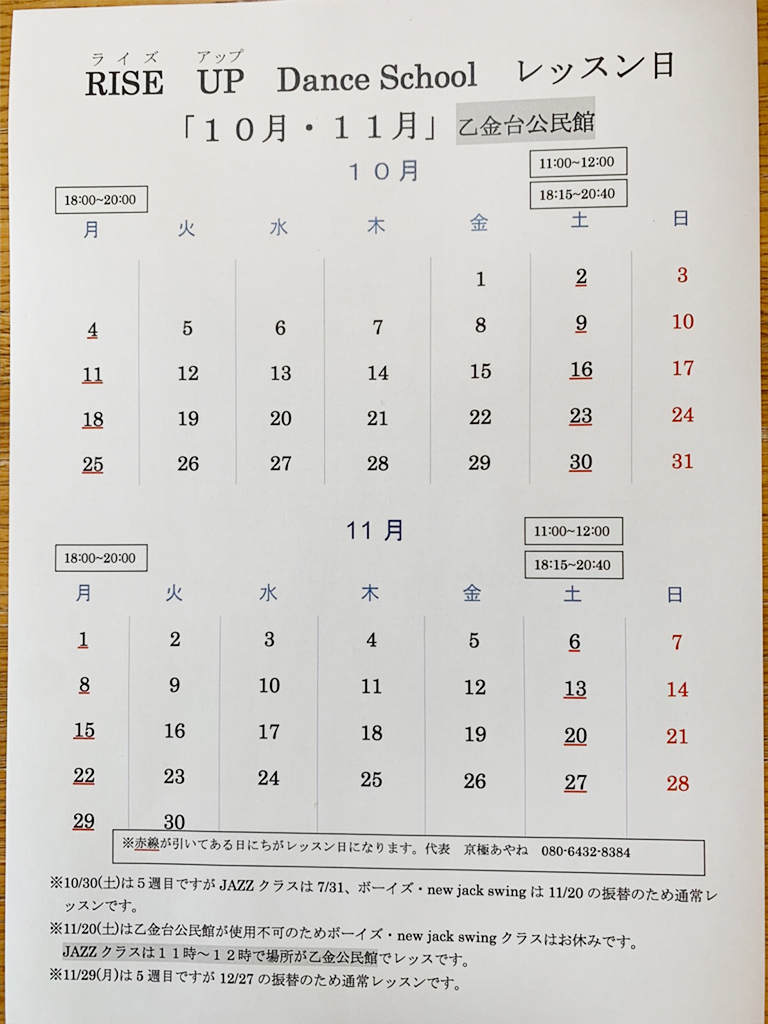 ライズ アップ
RISE UP Dance School レッスン日
「10月・11月」 乙金台公民館
10月
11:00~12:00
18:00~20:00 18:15~20:40
月 火 水 木 金 土 日
1 2 3
4 5 6 7 8 9 10
11 12 13 14 15 16 17
18 19 20 21 22 23 24
25 26 27 28 29 30 31
11月
11:00~12:00
18:00~20:00 18:15~20:40
月 火 水 木 金 土 日
1 2 3 4 5 6 7
8 9 10 11 12 13 14
15 16 17 18 19 20 21
22 23 24 25 26 27 28
29 30
※赤線が引いてある日にちがレッスン日になります。代表 京極あやね 080-6432-8384
※10/30(土)は5週目ですが JAZZ クラスは 7/31、ボーイズ・new jack swing は 11/20 の振替のため通常レ
ッスンです。
※11/20(土)は乙金台公民館が使用不可のためボーイズ・new jack swing クラスはお休みです。
JAZZ クラスは11時～12時で場所が乙金公民館でレッスです。
※11/29(月)は5週目ですが 12/27 の振替のため通常レッスンです。